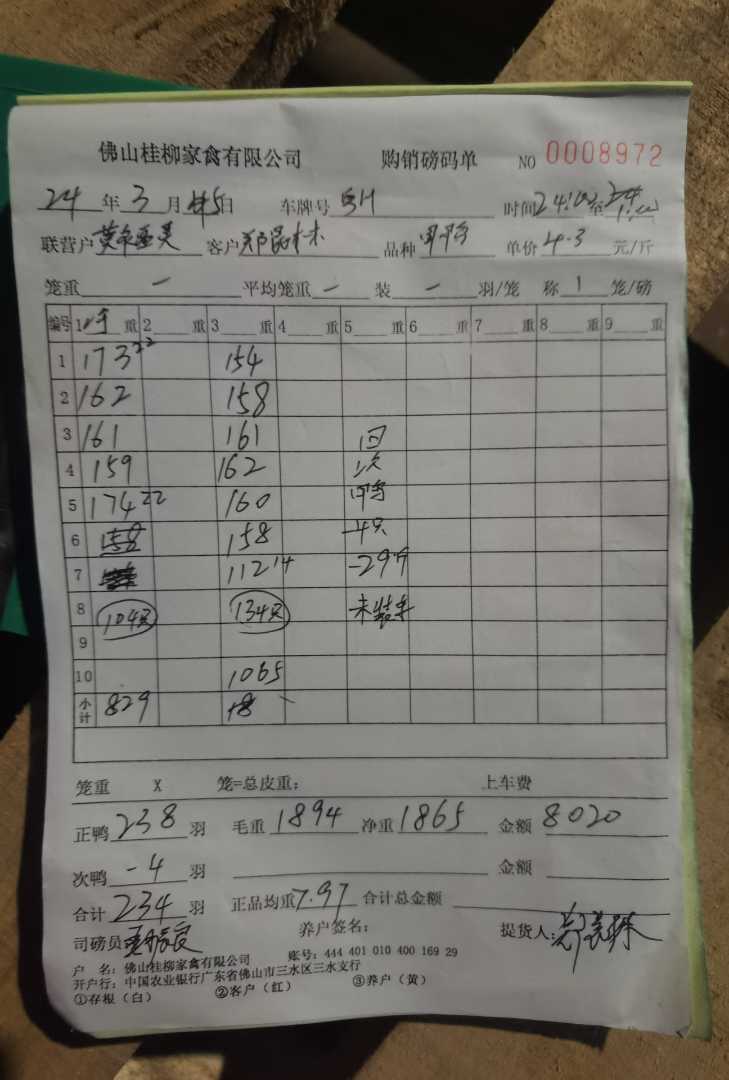 佛山桂柳家禽有限公司 购销磅码单 NO 0008972
24年3月5日 车牌号 时间24:00至
联营户 客户 品种 单价4.3元/斤
笼重 一 平均笼重 一 装 一 羽/笼 称 1 笼/磅
编号 1 重 2 重 3 重 4 重 5 重 6 重 7 重 8 重 9 重
1 173 22 154
2 162 158
3 161 161 回
4 159 162 次
5 174 22 160 鸭
6 158 158 4只
7 112 14 -29斤
8 104只 134只 未装车
9
10 1065
小计 829 +8
笼重 X 笼=总皮重: 上车费
正鸭 238 羽 毛重 1894 净重 1865 金额 8020
次鸭 -4 羽 金额
合计 234 羽 正品均重 7.97 合计总金额
司磅员 养户签名: 提货人:
户 名: 佛山桂柳家禽有限公司 账号: 444 401 010 400 169 29
开户行: 中国农业银行广东省佛山市三水区三水支行
①存根（白） ②客户（红） ③养户（黄）